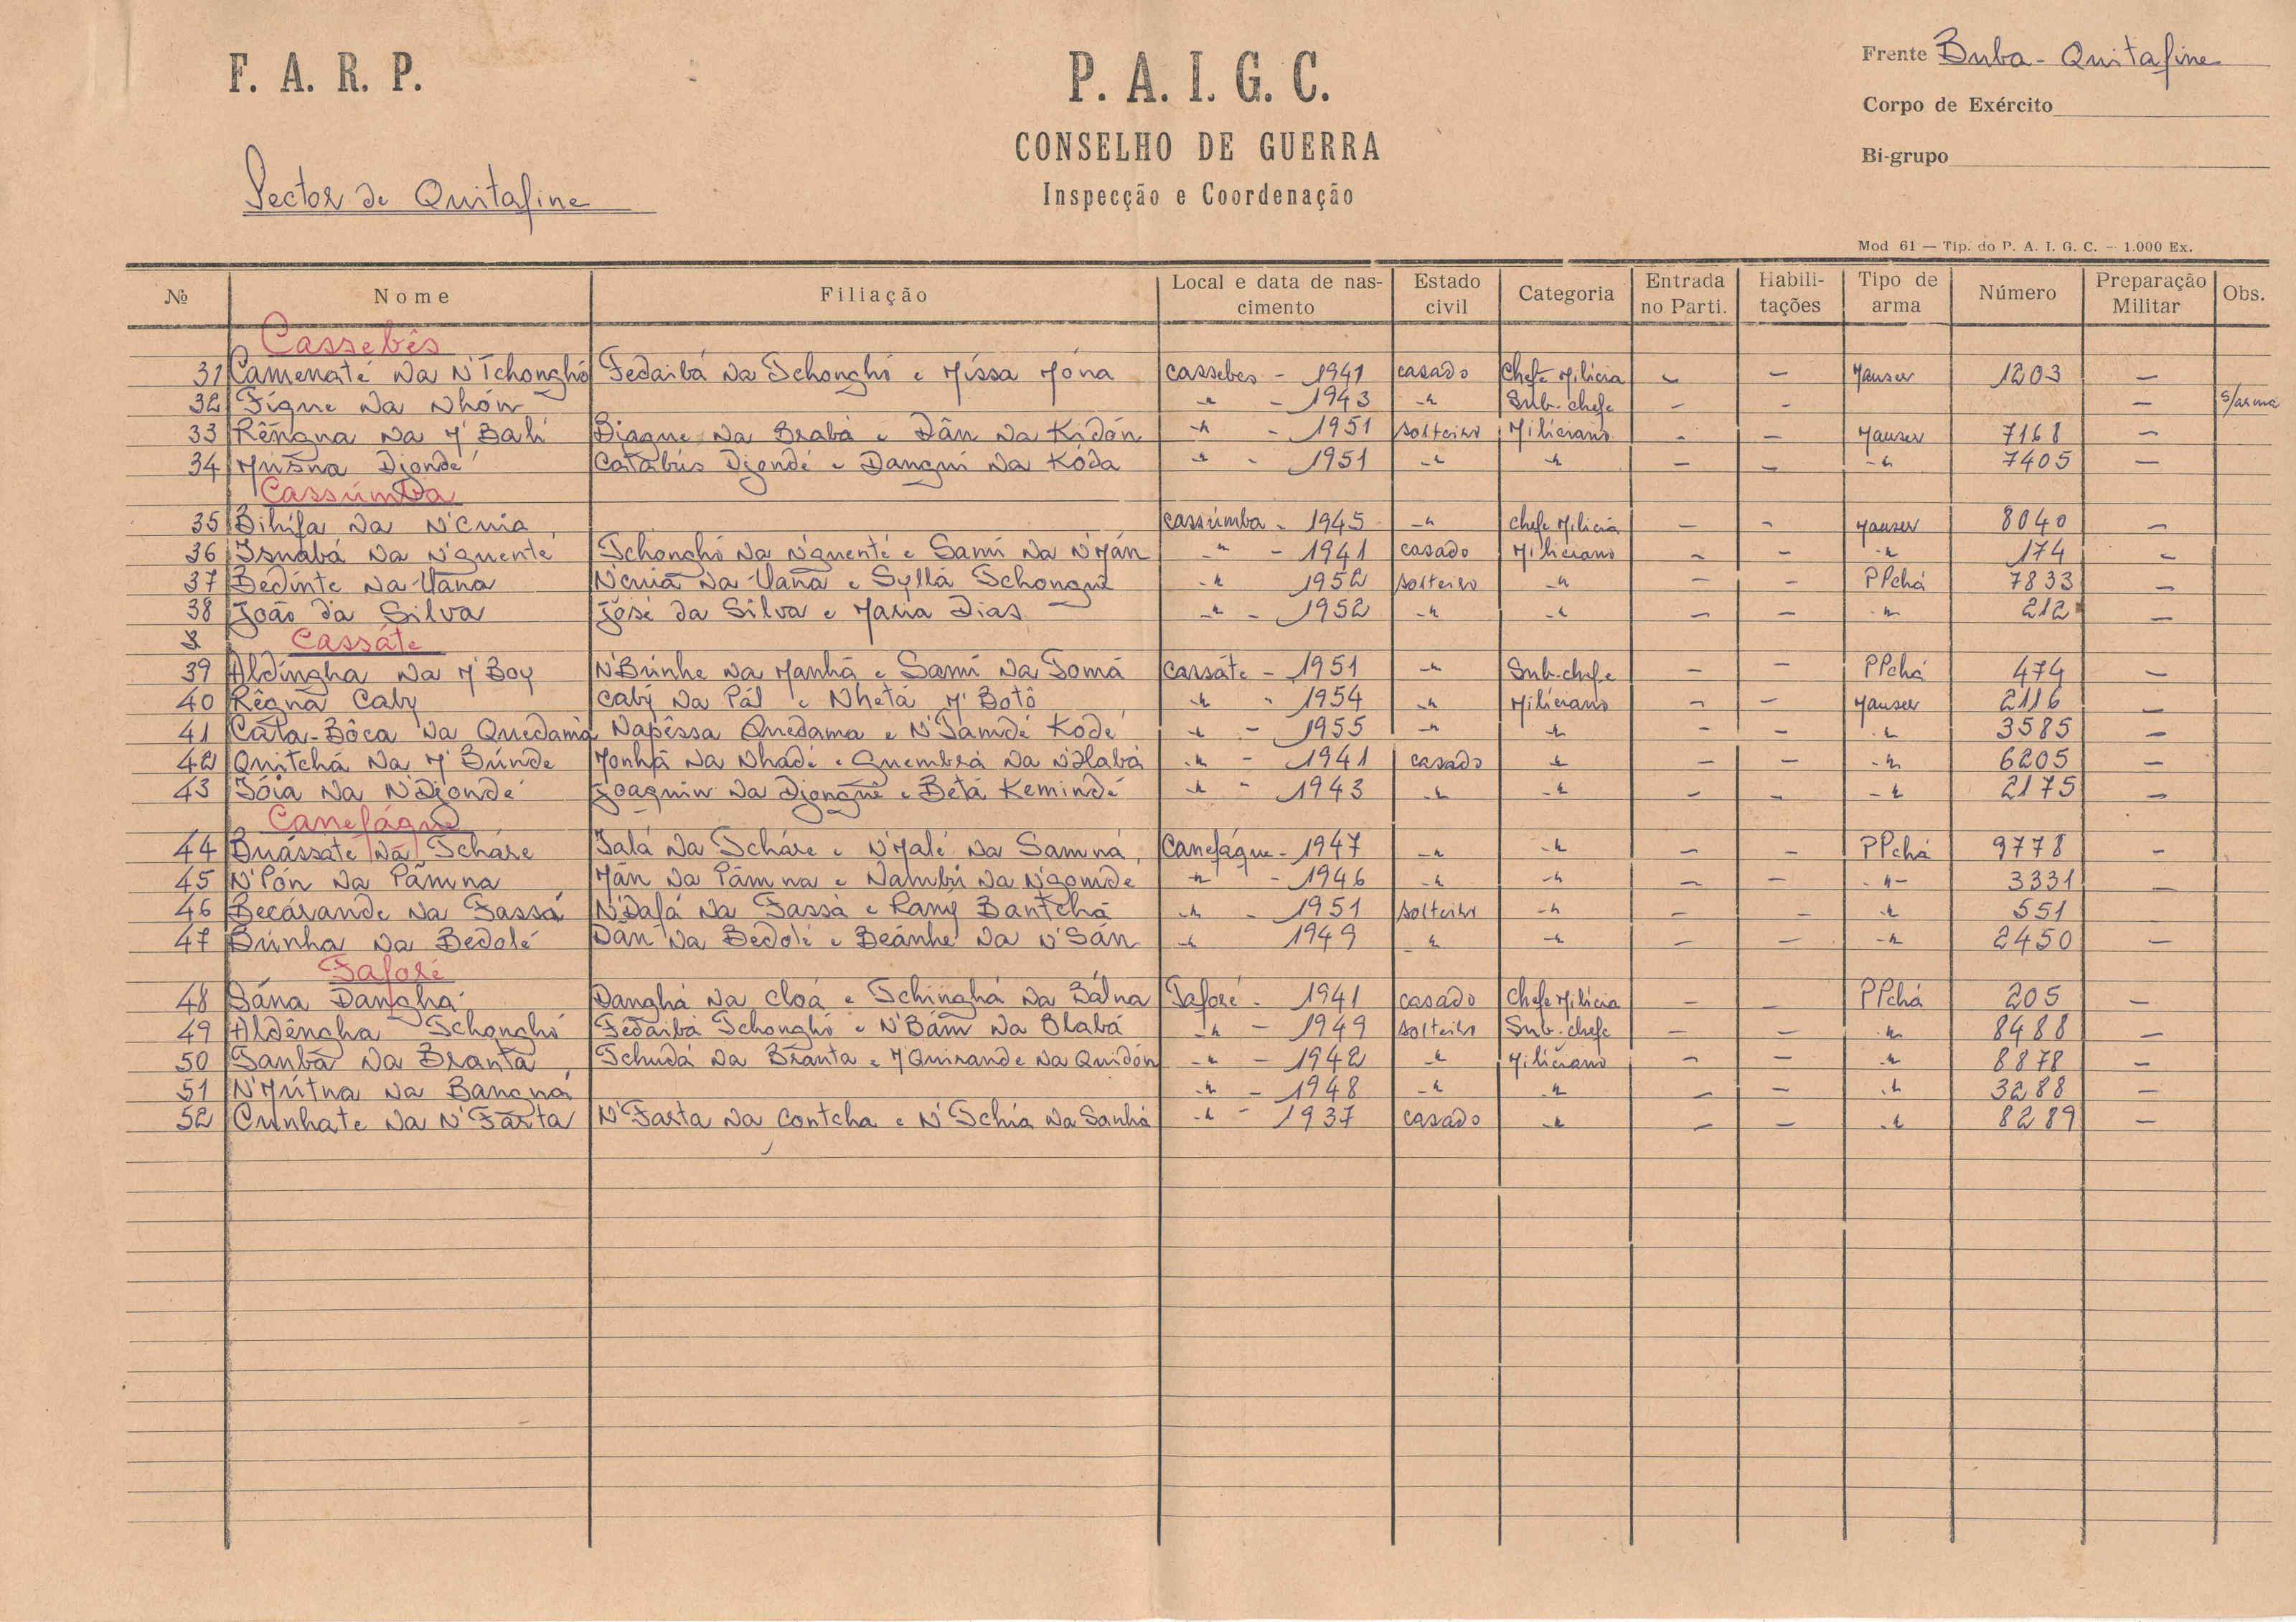 F. A. R. P.
P. A. I. G. C.
CONSELHO DE GUERRA
Inspecção e Coordenação
Frente Buba - Quitafine
Corpo de Exército
Bi-grupo
Sector de Quitafine
Mod 61 — Tip. do P. A. I. G. C. — 1.000 Ex.
№ Nome Filiação Local e data de nas- Estado Categoria Entrada Habili- Tipo de Número Preparação Obs.
cimento civil no Parti. tações arma Militar
Cassebês
31 Camenaté Na N'Tchonghó Fedaibá Na Tchonghó e Míssa Móna cassebes - 1941 casado Chefe Milícia - - Mauser 1203 -
32 Fígne Na Nhón " - 1943 " Sub-chefe - - - s/arma
33 Rêngna Na M'Bali Diagne Na Brabá e Dân Na Kidón " - 1951 solteiro Miliciano - - Mauser 7168 -
34 Musna Djondé Catabús Djondé e Dangui Na Kóda " - 1951 " " - - " 7405 -
Cassúmba
35 Bihifa Na N'Cuia cassúmba - 1945 " chefe Milicia - - Mauser 8040 -
36 Isnabá Na N'guente Tchonghó Na N'guenté e Samí Na N'Mán " - 1941 casado Miliciano - - " 174 -
37 Bedinte Na Uana N'cuia Na Uana e Syllá Tchongue " 1952 solteiro " - - PPchá 7833 -
38 João da Silva José da Silva e Maria Dias " - 1952 " " - - " 212 -
Cassáte
39 Aldingha Na M'Boy N'Búnhe Na Manhã e Samí Na Tomá cassáte - 1951 " Sub-chefe - - PPchá 474 -
40 Rêgna Caby Caby Na Pál e Nhetá M'Botô " - 1954 " Miliciano - - Mauser 2116 -
41 Cata-Bôca Na Quedamá Napêssa Quedama e N'Tamdé Kodé " - 1955 " " - - " 3585 -
42 Quitchá Na M'Búnde Monhá Na Nhadé e Guembrá Na N'Habá " - 1941 casado " - - " 6205 -
43 Tóia Na N'Djondé Joaquin Na Djongue e Betá Kemindé " - 1943 " " - - " 2175 -
Canefáque
44 Buássate Na Tcháre Talá Na Tcháre e N'Malé Na Samná Canefáque - 1947 " " - - PPchá 9778 -
45 N'Pón Na Pâmna Mán Na Pâmna e Nambú Na N'gomde " - 1946 " " - - " 3331 -
46 Becárande Na Fassá N'Dafá Na Fassá e Rany Bantchá " - 1951 solteiro " - - " 551
47 Búnha Na Bedolé Dân Na Bedolé e Beánhe Na N'Sán " 1949 " " - - " 2450 -
Taforé
48 Sána Danghá Danghá Na Cloá e Tchinghá Na Bálna Taforé - 1941 casado Chefe Milícia - - PPchá 205 -
49 Aldêngha Tchonghó Fedaibá Tchonghó e N'Bám Na Blabá " - 1949 solteiro Sub-chefe - - " 8488 -
50 Tanbá Na Branta Tchudá Na Branta e M'Quirande Na Quidón " - 1942 " Miliciano - - " 8878 -
51 N'Mútna Na Bangná " - 1948 " " - - " 3288 -
52 Cunhate Na N'Farta N'Farta Na Contcha e N'Tchia Na Sanhá " - 1937 casado " - - " 8289 -